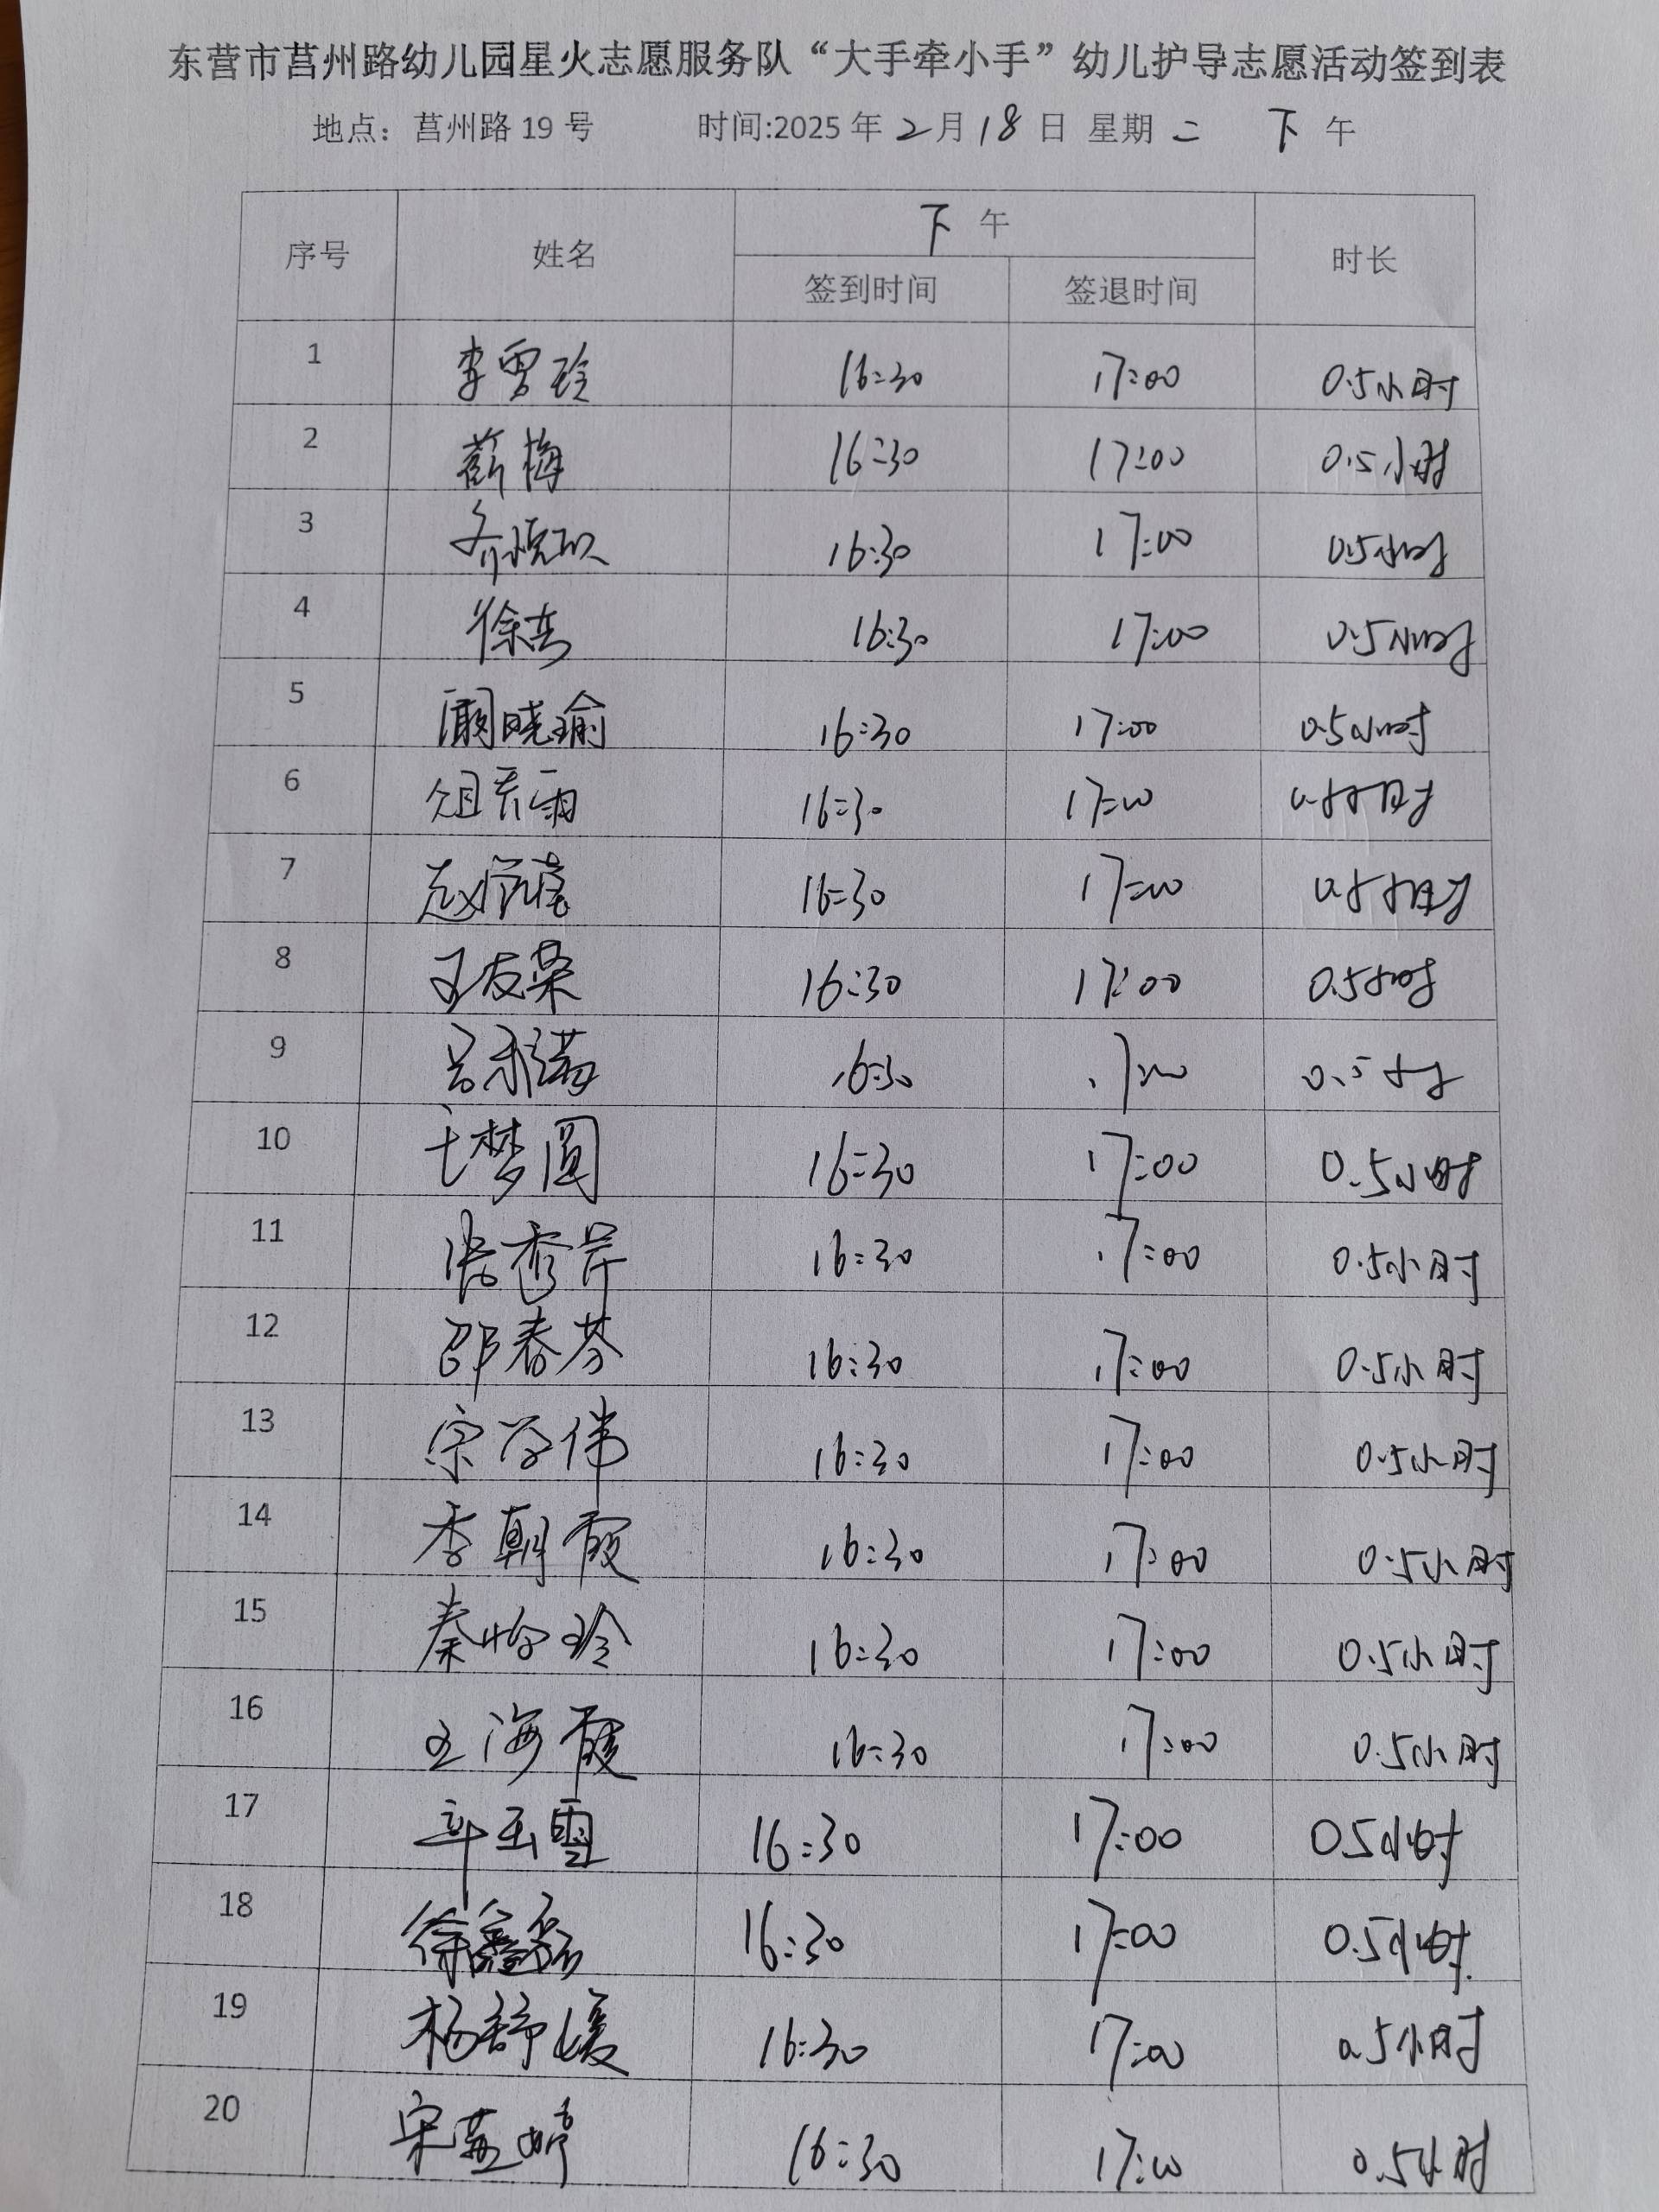 东营市莒州路幼儿园星火志愿服务队“大手牵小手”幼儿护导志愿活动签到表
地点：莒州路 19 号 时间:2025 年 2 月 18 日 星期 二 下 午
序号 姓名 下 午 时长
签到时间 签退时间
1 李雪玲 16:30 17:00 0.5小时
2 薪梅 16:30 17:00 0.5小时
3 16:30 17:00 0.5小时
4 16:30 17:00 0.5小时
5 晓瑜 16:30 17:00 0.5小时
6 16:30 17:00 0.5小时
7 16:30 17:00 0.5小时
8 王友荣 16:30 17:00 0.5小时
9 16:30 17:00 0.5小时
10 梦圆 16:30 17:00 0.5小时
11 张秀芹 16:30 17:00 0.5小时
12 邵春芬 16:30 17:00 0.5小时
13 宗学伟 16:30 17:00 0.5小时
14 李朝霞 16:30 17:00 0.5小时
15 秦怡玲 16:30 17:00 0.5小时
16 王海霞 16:30 17:00 0.5小时
17 辛玉雪 16:30 17:00 0.5小时
18 徐鑫磊 16:30 17:00 0.5小时
19 杨舒媛 16:30 17:00 0.5小时
20 宋燕婷 16:30 17:00 0.5小时